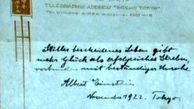 TELEGRAPHIC ADDRESS TOKYO
Stilles bescheidenes Leben gibt
mehr Glück als erfolgreiches Streben,
verbunden mit beständiger Unruhe.
Albert Einstein
November 1922. Tokyo